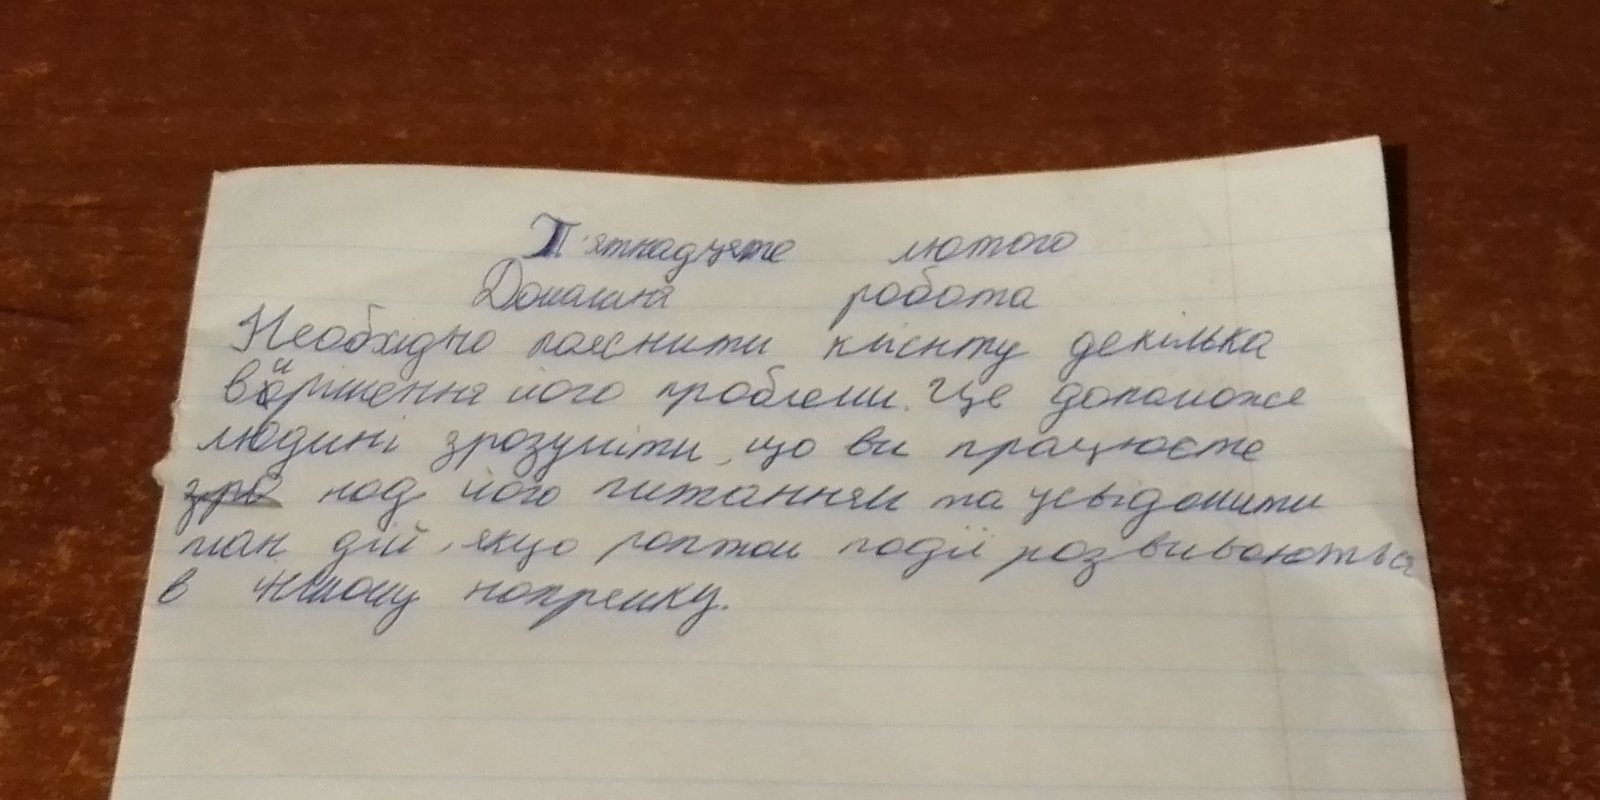 П'ятнадцяте лютого
Домашня робота
Необхідно пояснити клієнту декілька
вирішення його проблеми. Це допоможе
людині зрозуміти, що ви працюєте
зро над його питанням та усвідомити
план дій, якщо раптом події розвиваються
в іншому напрямку.